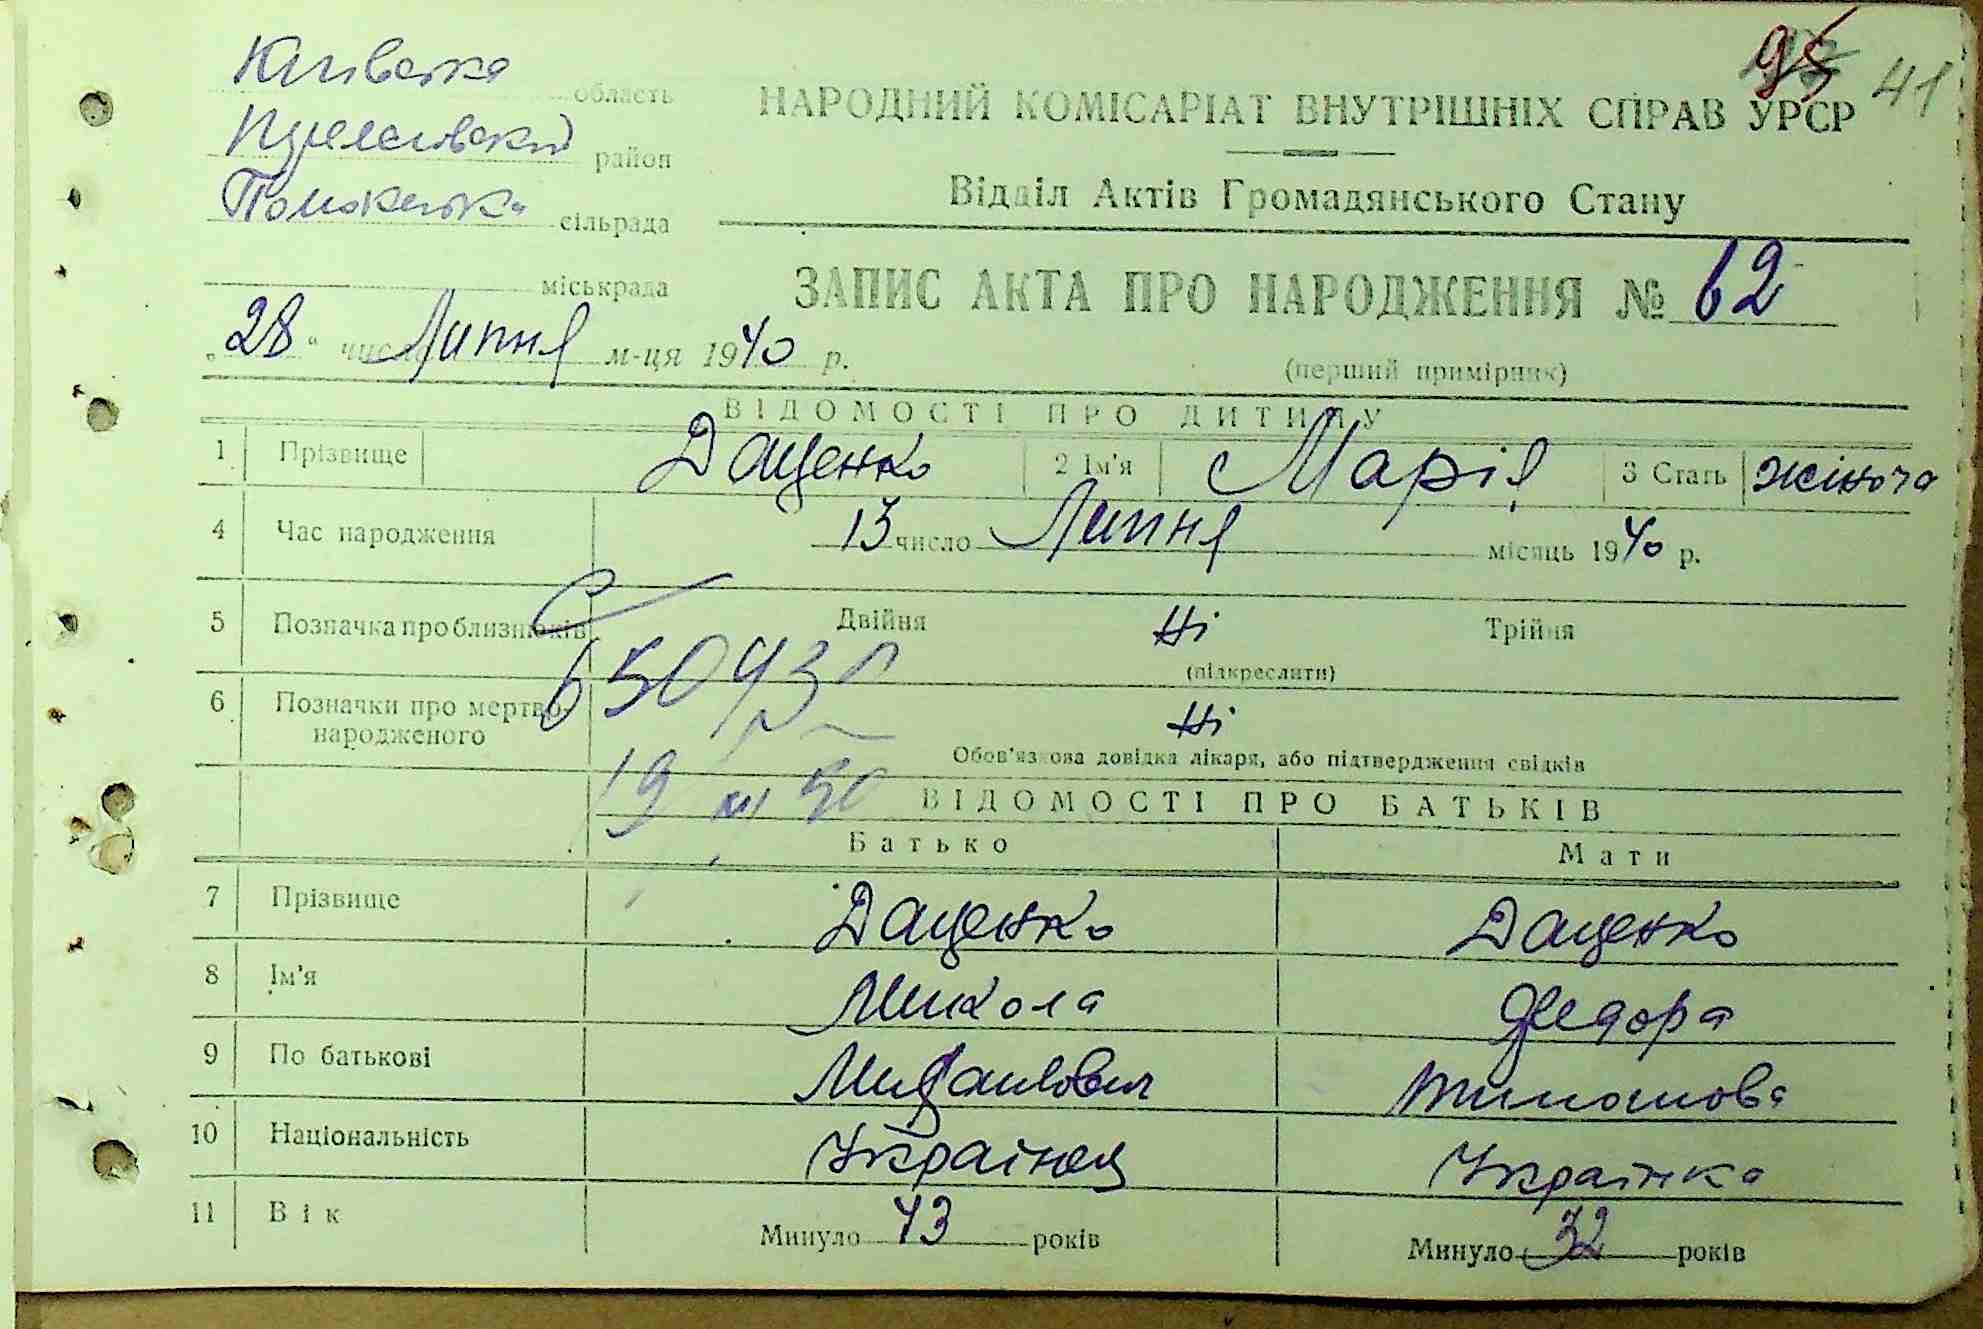 95 41
Київська область
НАРОДНИЙ КОМІСАРІАТ ВНУТРІШНІХ СПРАВ УРСР
район
сільрада
Відділ Актів Громадянського Стану
міськрада
ЗАПИС АКТА ПРО НАРОДЖЕННЯ № 62
„28“ число Липня м-ця 1940 р.
(перший примірник)
ВІДОМОСТІ ПРО ДИТИНУ
1 Прізвище Даценко 2 Ім'я Марія 3 Стать жіноча
4 Час народження 13 число Липня місяць 1940 р.
5 Позначка про близнюків Двійня Ні Трійня
(підкреслити)
6 Позначки про мертво-
народженого Ні
Обов'язкова довідка лікаря, або підтвердження свідків
19 XII 50
ВІДОМОСТІ ПРО БАТЬКІВ
Батько Мати
7 Прізвище Даценко Даценко
8 Ім'я Микола Федора
9 По батькові Михайлович
10 Національність Українец Українка
11 Вік Минуло 43 років Минуло 32 років